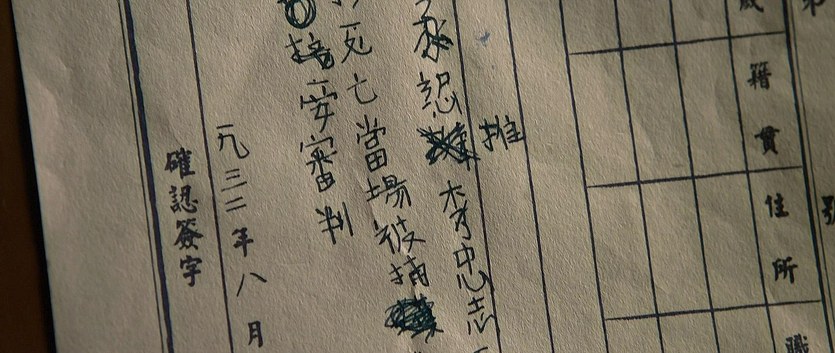 第
籍貫 住所 職
推
承認 李忠志
死亡當場被捕
安審判
一九三二年八月
確認簽字